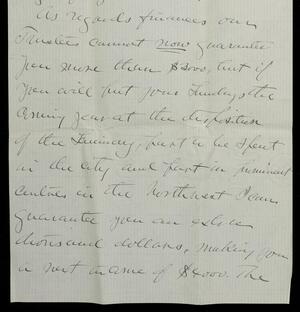 As regards finances our
Trustees cannot now guarantee
you more than $3000, but if
you will put your Sundays the
coming year at the disposition
of the Seminary, part to be spent
in the city and part in prominent
centres in the Northwest I can
guarantee you an extra
thousand dollars, making you
a net income of $4000. The